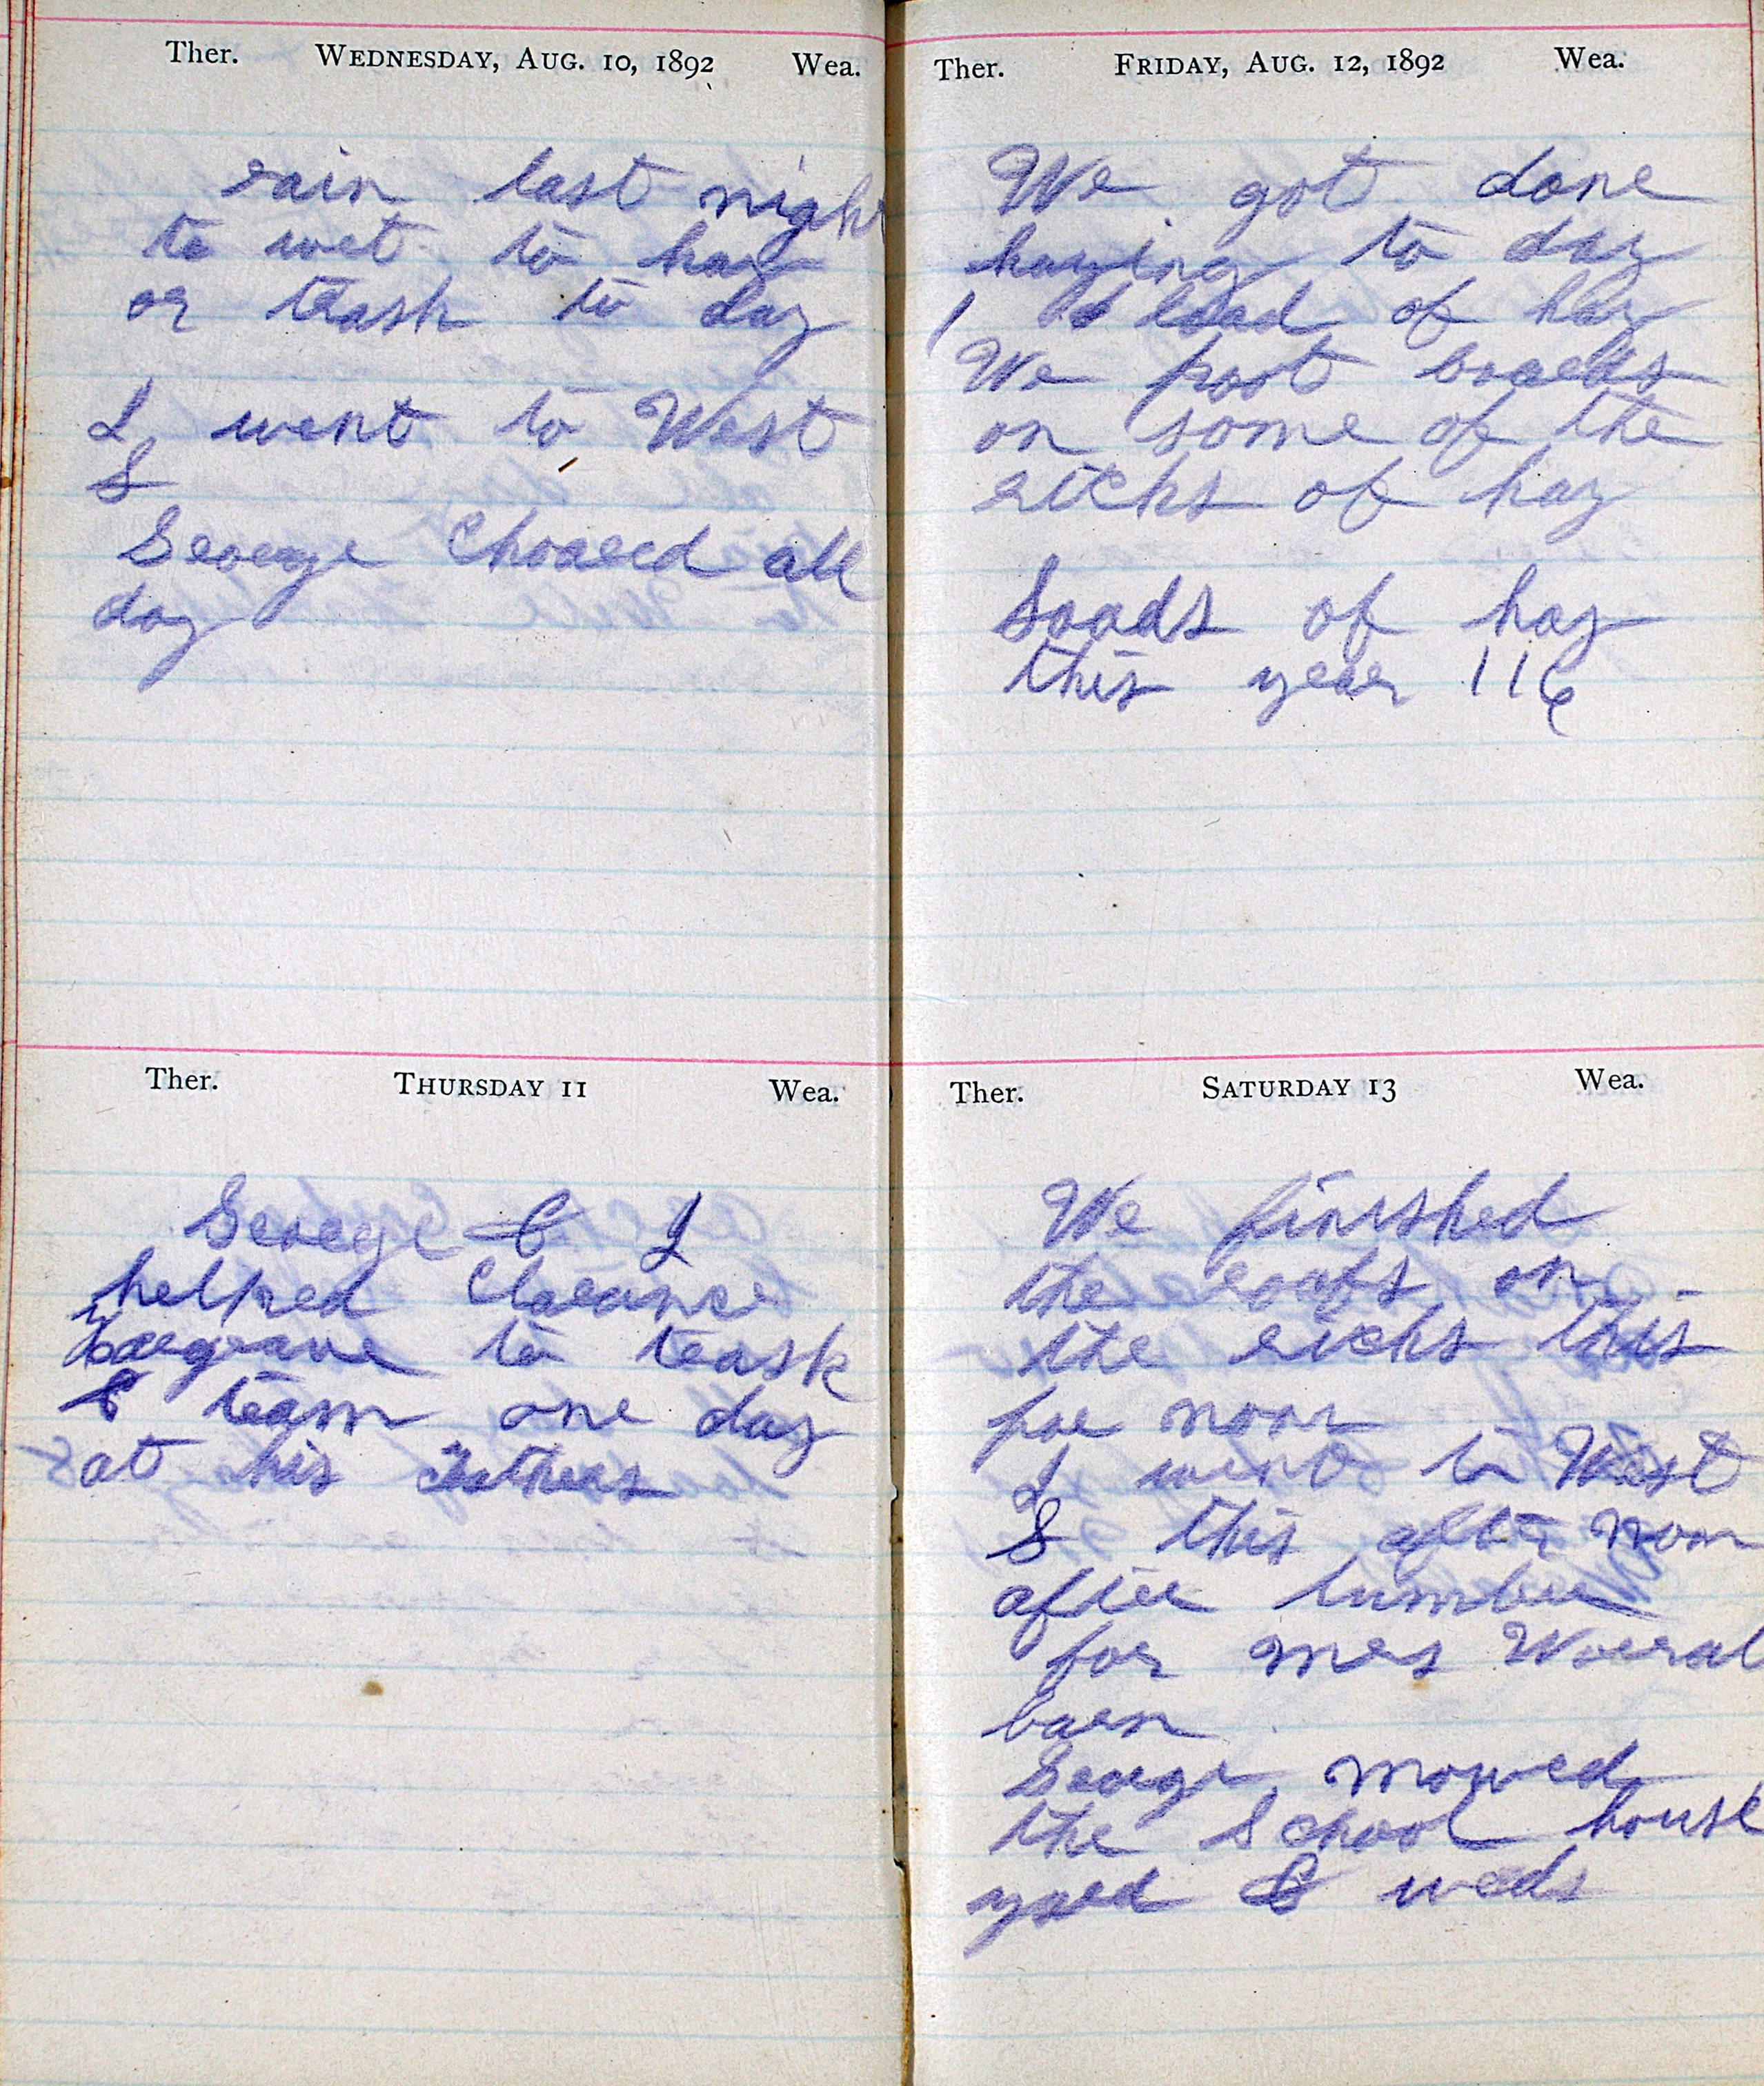 Ther. WEDNESDAY, AUG. 10, 1892 Wea.
rain last night
to wet to hay
or trash to day
I went to West
S
George Choared all
day
Ther. THURSDAY 11 Wea.
George & I
helped Clarance
Hargrave to trash
& team one day
at his
Ther. FRIDAY, AUG. 12, 1892 Wea.
We got done
haying to day
1 load of hay
We poot boards
on some of the
ricks of hay
Loads of hay
this year 116
Ther. SATURDAY 13 Wea.
We finished
the roofs on
the ricks this
foe noon
I went to West
S this after noon
after lumber
for Mrs Worral
barn
George mowed
the School house
yard & weds